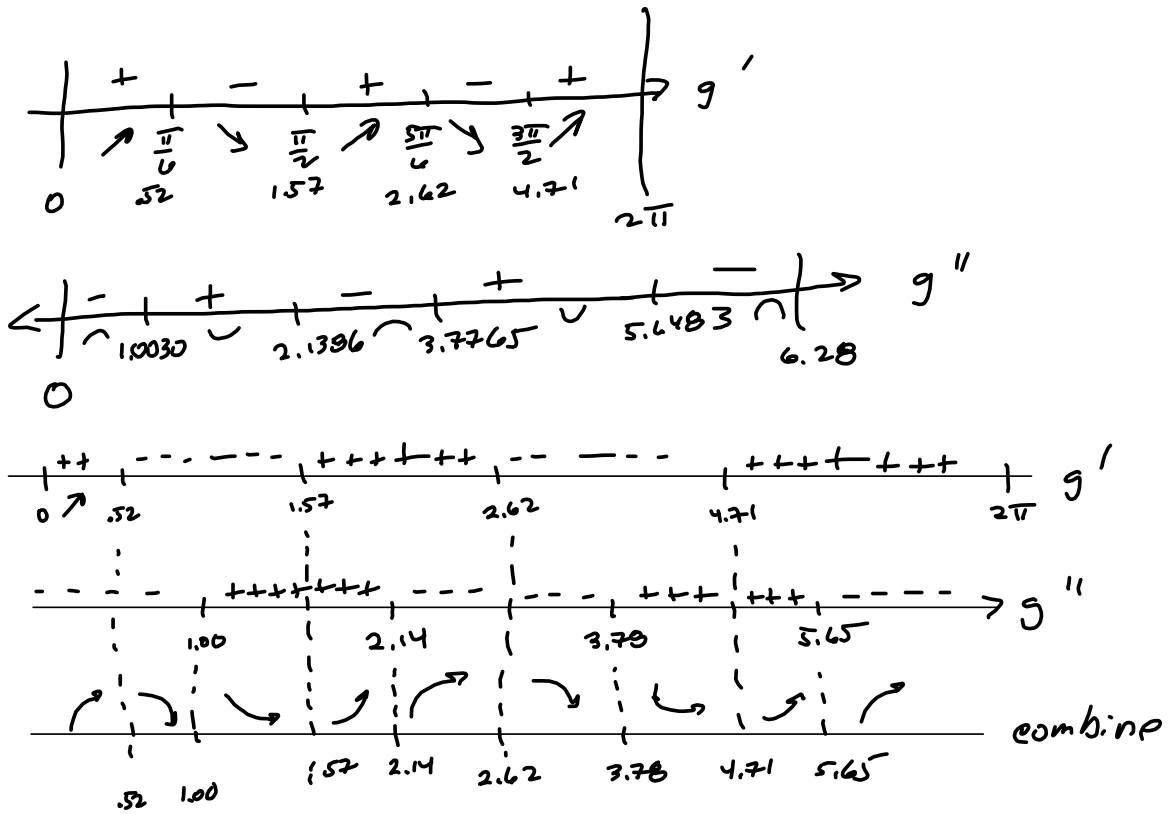 + − + − + g'
π/6 π/2 5π/6 3π/2
0 .52 1.57 2.62 4.71 2π
− + − + − g"
1.0030 2.1386 3.7765 5.6483 6.28
0
++ - - - — - - - +++++++ - - — - - +++++++ g'
0 .52 1.57 2.62 4.71 2π
- - - - - +++++++ - - - - - - +++ +++ - - - - - g"
1.00 2.14 3.78 5.65
combine
.52 1.00 1.57 2.14 2.62 3.78 4.71 5.65